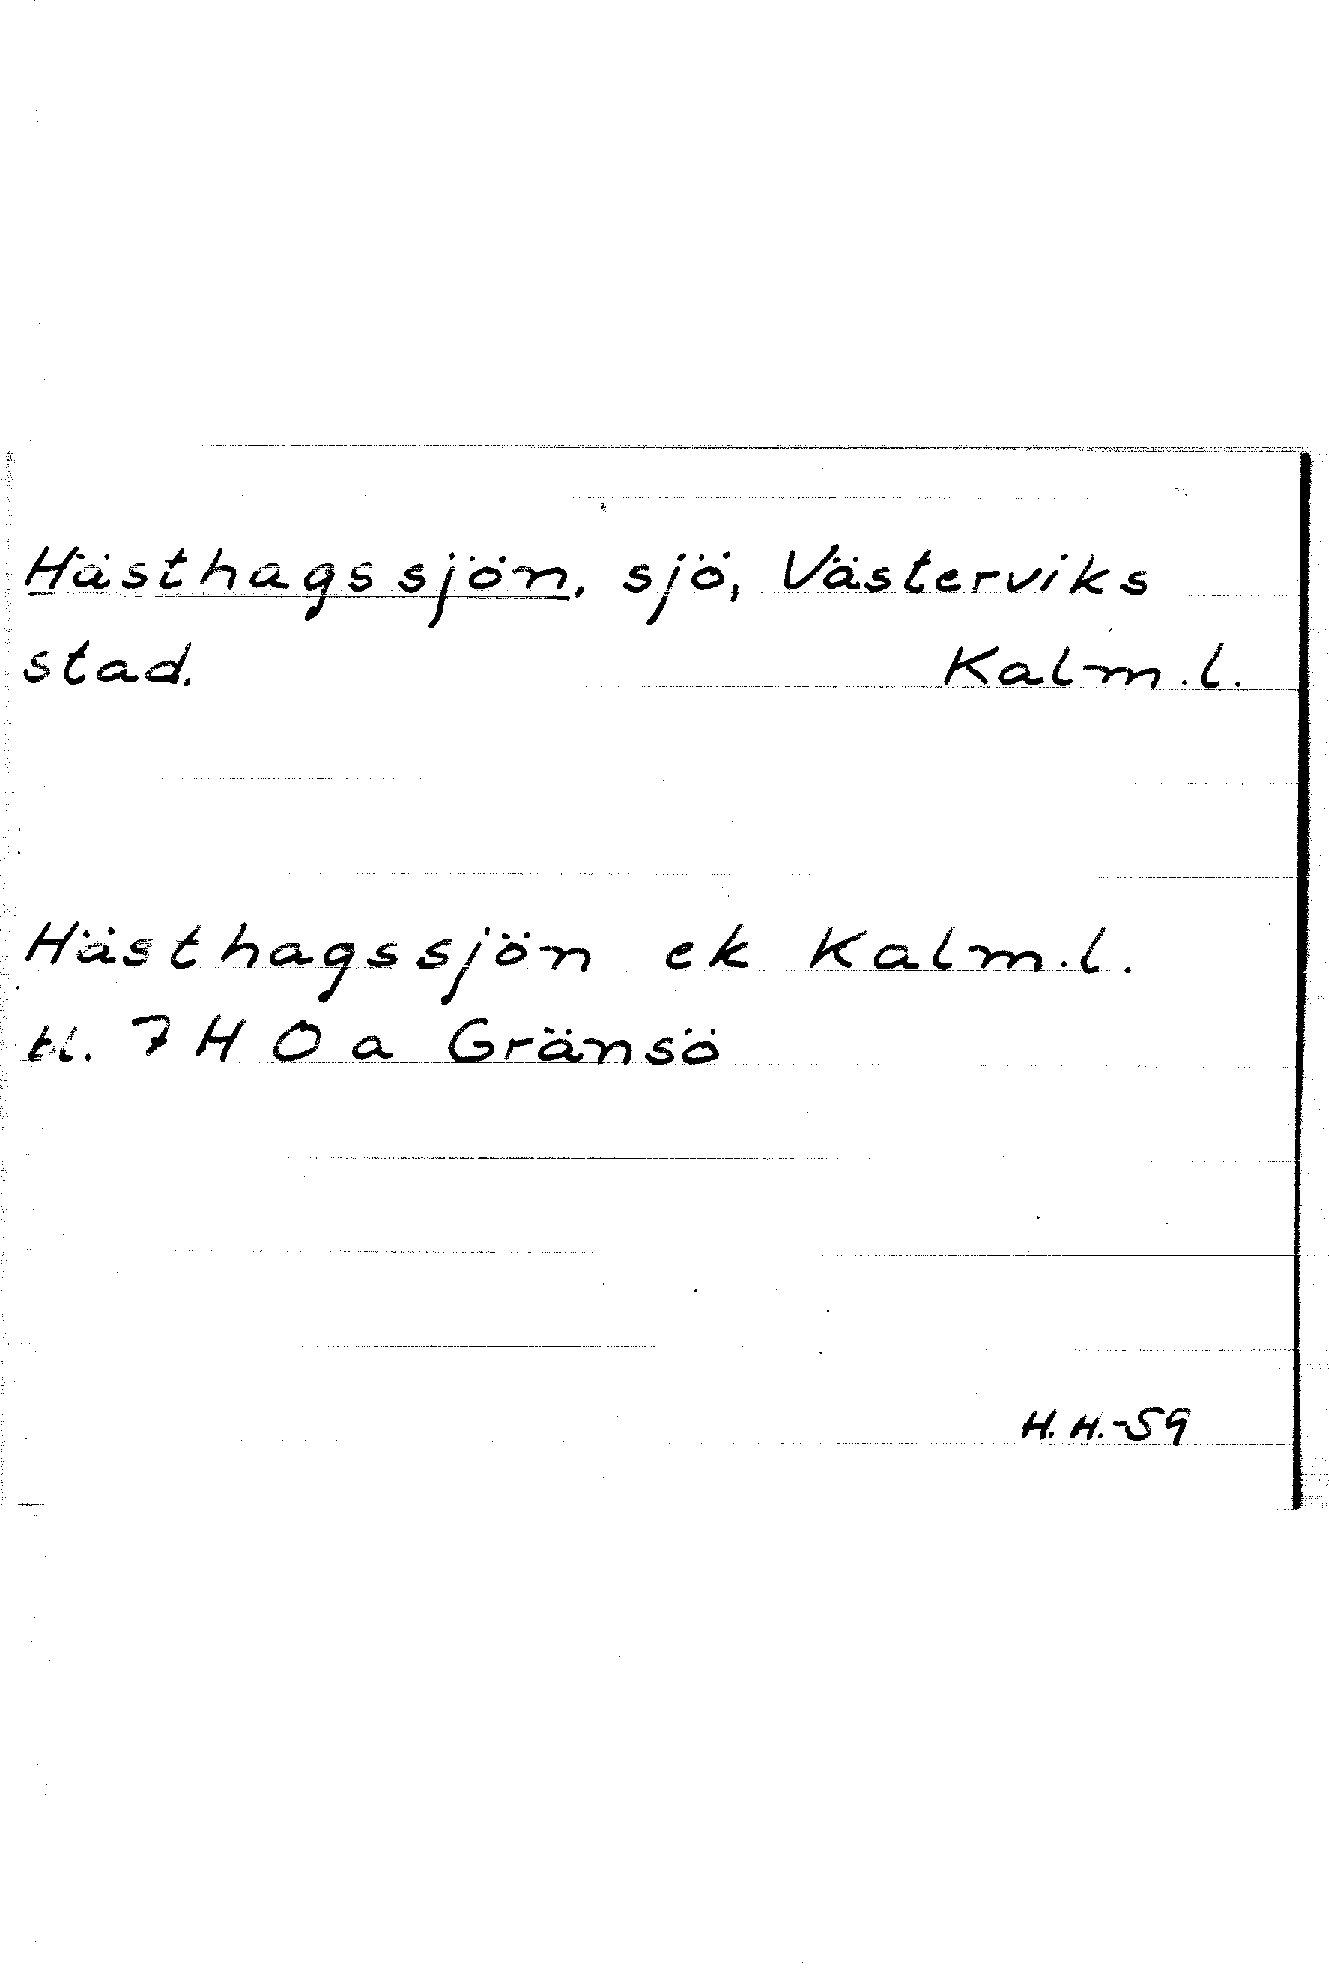 Hästhagssjön, sjö, Västerviks
stad. Kalm.l.
Hästhagssjön ek Kalm.l.
bl. 7 H 0 a Gränsö
H.H.-59